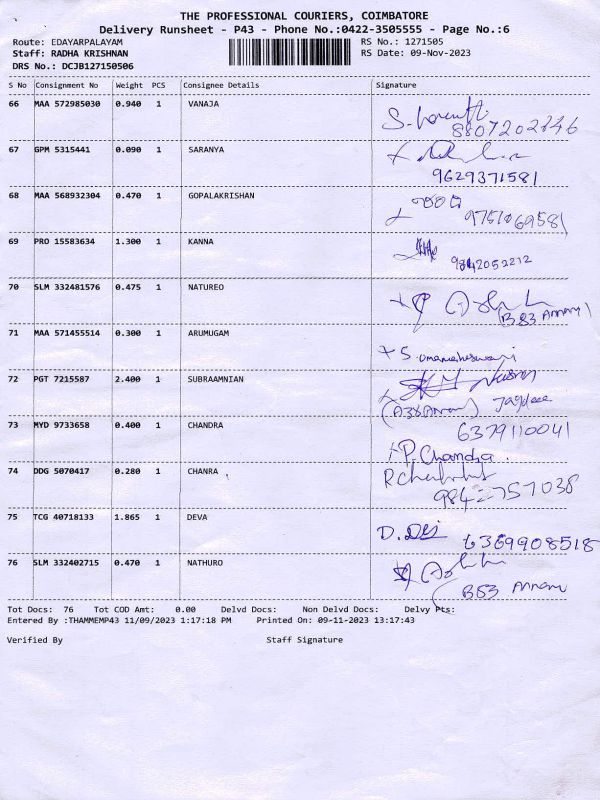 THE PROFESSIONAL COURIERS, COIMBATORE
Delivery Runsheet - P43 - Phone No.:0422-3505555 - Page No.:6
Route: EDAYARPALAYAM RS No.: 1271505
Staff: RADHA KRISHNAN RS Date: 09-Nov-2023
DRS No.: DCJB127150506
S No Consignment No Weight PCS Consignee Details Signature
66 MAA 572985030 0.940 1 VANAJA
8807202846
67 GPM 5315441 0.090 1 SARANYA
9629371581
68 MAA 568932304 0.470 1 GOPALAKRISHAN
9751069581
69 PRO 15583634 1.300 1 KANNA
9842052212
70 SLM 332481576 0.475 1 NATUREO
(B 83 Annam)
71 MAA 571455514 0.300 1 ARUMUGAM
S. Umamaheswari
72 PGT 7215587 2.400 1 SUBRAAMNIAN
73 MYD 9733658 0.400 1 CHANDRA
6379110041
P. Chandra.
74 DDG 5070417 0.280 1 CHANRA
75 TCG 40718133 1.865 1 DEVA
D. 6369908518
76 SLM 332402715 0.470 1 NATHURO
Tot Docs: 76 Tot COD Amt: 0.00 Delvd Docs: Non Delvd Docs: Delvy Pts:
Entered By :THAMMEMP43 11/09/2023 1:17:18 PM Printed On: 09-11-2023 13:17:43
Verified By Staff Signature